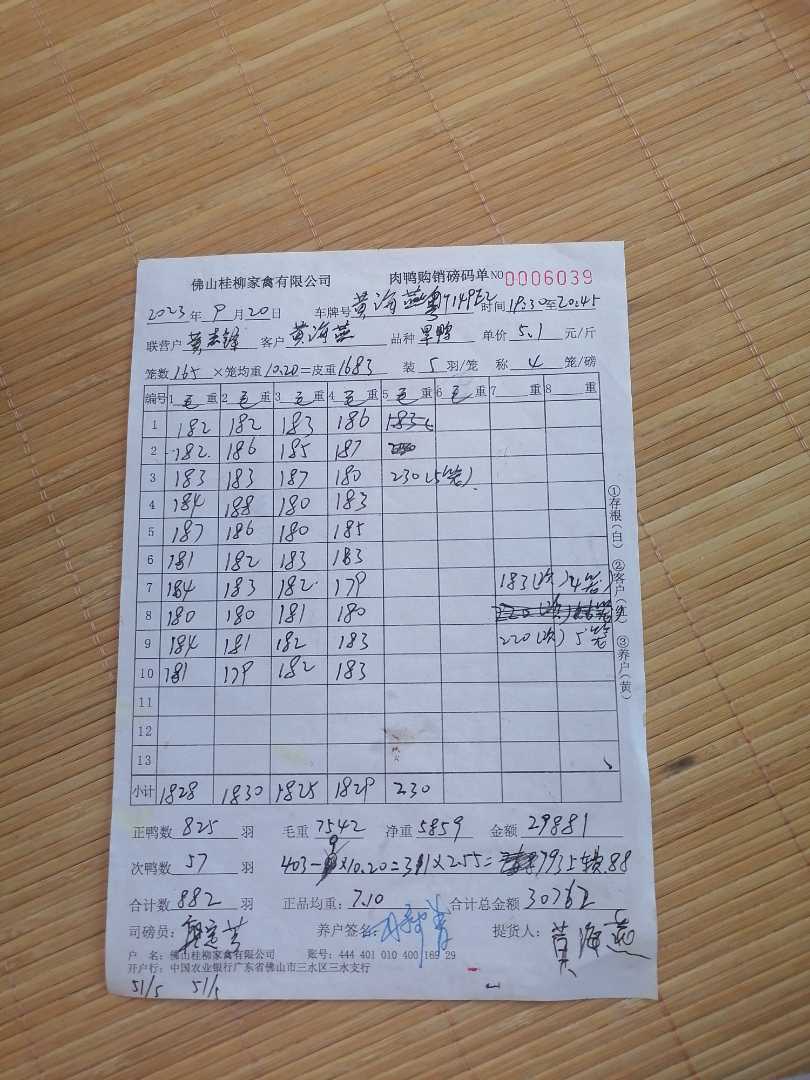 佛山桂柳家禽有限公司 肉鸭购销磅码单 NO 0006039
2023 年 9 月 20 日 车牌号 黄海燕粤 时间 19:30至20:45
联营户 黄志锋 客户 黄海燕 品种 旱鸭 单价 5.1 元/斤
笼数 165 ×笼均重 10.20 =皮重 1683 装 5 羽/笼 称 4 笼/磅
编号 1 毛 重 2 毛 重 3 毛 重 4 毛 重 5 毛 重 6 毛 重 7 重 8 重
1 182 182 183 186
2 182 186 185 187
3 183 183 187 180 230(5笼)
4 184 188 180 183
5 187 186 180 185
6 181 182 183 183
7 184 183 182 179 183(次)4笼
8 180 180 181 180
9 184 181 182 183 220(次)5笼
10 181 179 182 183
11
12
13
小计 1828 1830 1825 1829 230
①存根(白) ②客户(红) ③养户(黄)
正鸭数 825 羽 毛重 7542 净重 5859 金额 29881
次鸭数 57 羽 403-9×10.20=311×2.55=
合计数 882 羽 正品均重: 7.10 合计总金额 30762
司磅员: 养户签名: 提货人: 黄海燕
户 名: 佛山桂柳家禽有限公司 账号: 444 401 010 400 169 29
开户行: 中国农业银行广东省佛山市三水区三水支行
51/5 51/5